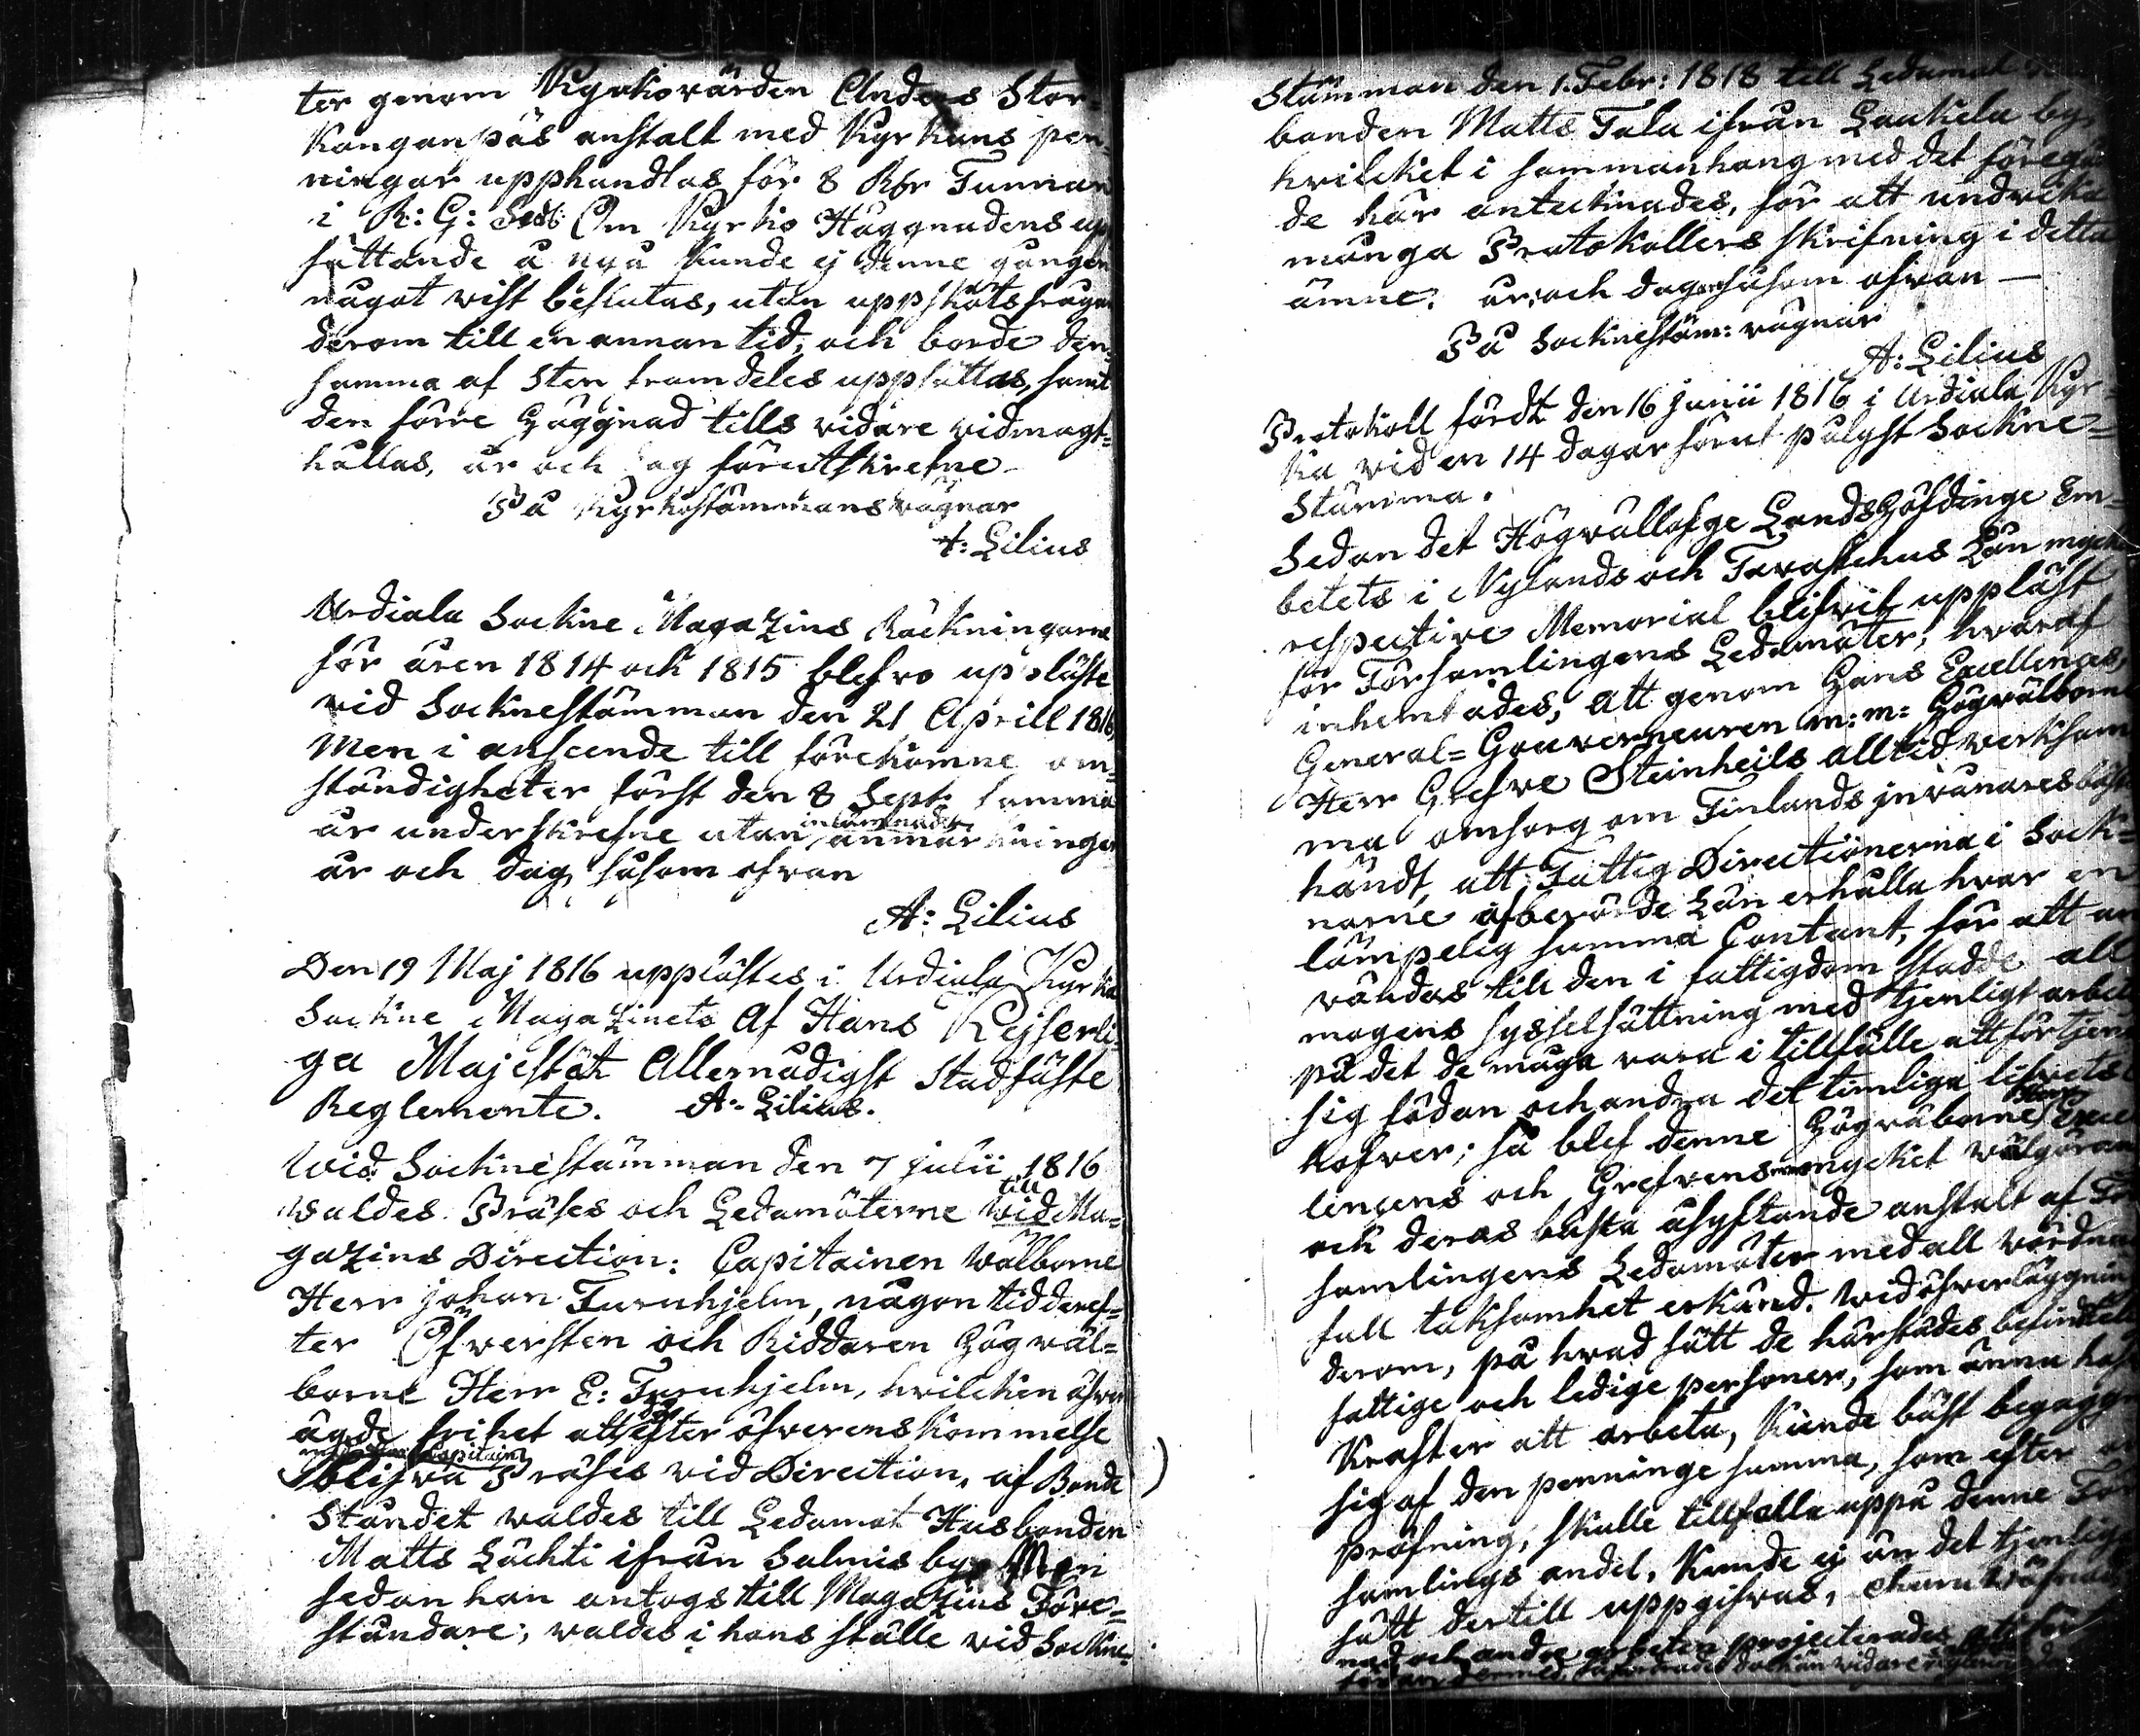 ter genom Kyrkovärden Anders Stor-
Kanganpäs anstalt med Kyrkans pen-
ningar upphandlas för 8 Rbr Tunnan
i R: G: Sedl: Om Kyrko Häggnadens upp
sättande å nya kunde ej denne gången
något visst beslutas, utan uppsköts frågan
derom till en annan tid, och borde den-
samma af Sten framdeles uppsättas, samt
den förre Häggnad tills vidare vidmagt-
hållas, år och dag förutskrefne
På Kyrkostämmans vägnar
A: Lilius
Urdiala Sockne Magazins Räckningarne
för åren 1814 och 1815 blefvo uppläste
vid Socknestämman den 21 Aprill 1816,
Men i anseende till förekomne om-
ständigheter först den 8 Sept: samma
år underskrefne utan inlämnade anmärkningar
år och dag såsom ofvan
A: Lilius
Den 19 Maj 1816 upplästes i Urdiala Kyrka
Sockne Magazinets Af Hans Kejserli-
ga Majestät Allernådigst Stadfäste
Reglemente. A: Lilius.
Wid Socknestämman den 7 julii 1816
valdes Præses och Ledamöterne till wid Ma-
gazins Direction: Capitainen Wälborne
Herr johan Furuhjelm, någon tid deref-
ter Öfwersten och Riddaren Högwäl-
borne Herr E: Furuhjelm, hvilcken äfven
ägde frihet att efter öfverenskommelse
med Capitain
blifva Præses vid Direction, af Bonde
Ståndet waldes till Ledamot Husbonden
Matts Lächti ifrån Salmis by, Men
sedan han antogs till Magazins Före-
ståndare, waldes i hans ställe vid Sockne-
Stämman den 1. Febr: 1818 till Ledamot
bonden Matts Tala ifrån Laukela by,
hvilcket i sammanhang med det föregå
de här antecknades, för att undvika
många Protokollers skrifning i detta
ämne. år och dag såsom ofvan —
På Socknestäm: vägnar
A: Lilius
Protokoll fördt den 16 junii 1816 i Urdiala Kyr-
ka vid en 14 dagar förut pålyst Sockne-
Stämma.
Sedan det Högvällofge LandsHöfdinge Em-
betets i Nylands och Tavastehus Län mycket
respective Memorial blifvit uppläst
för Församlingens Ledamöter, hvaraf
inhemtades, att genom Hans Excellences,
General-Gouverneuren m: m: Högwälborne
Herr Grefve Steinheils alltid verksam
ma omsorg om Finlands jnvånares bästa
händt, att Fattig Directionerna i Sock-
narne af berörde Län erhålla hvar en
lämpelig summa Contant, för att an
vändas till den i fattigdom stadde all
mogens sysselsättning med tjenligt arbete
på det de måga vara i tillfälle att förtjena
sig födan och andra det timliga lifvets
hofver; så blef denne Högwälborne Herr Excel
lencens och Grefvens mycket wälgörande
och deras bästa åsyftande anstalt af För
samlingens Ledamöter med all vördnads
full taksamhet erkänd. Wid öfverläggning
derom, på hvad sätt de härstädes befintelige
fattige och ledige personer, som ännu hafva
Krafter att arbeta, kunde bäst begagna
sig af den penninge summa, som efter
pröfning, skulle tillfalla uppå denne För
samlings andel, kunde ej än det tjenlig
sätt dertill uppgifvas,
nad och andre arbeten projecterades